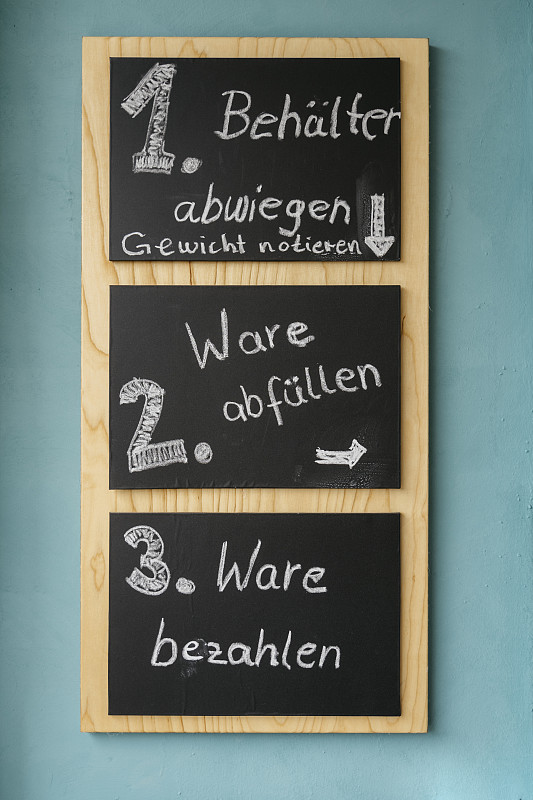 1. Behälter
abwiegen
Gewicht notieren
Ware
2. abfüllen
3. Ware
bezahlen